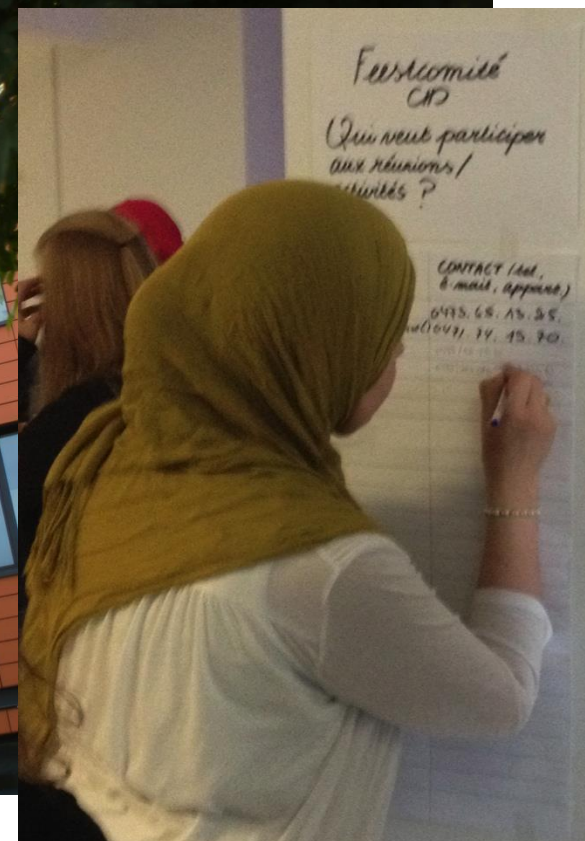 Feestcomité
CID
Qui veut participer
aux réunions/
activités ?
CONTACT (tel,
e-mail, appart,)
0473. 65. 13. 85.
74. 15. 70